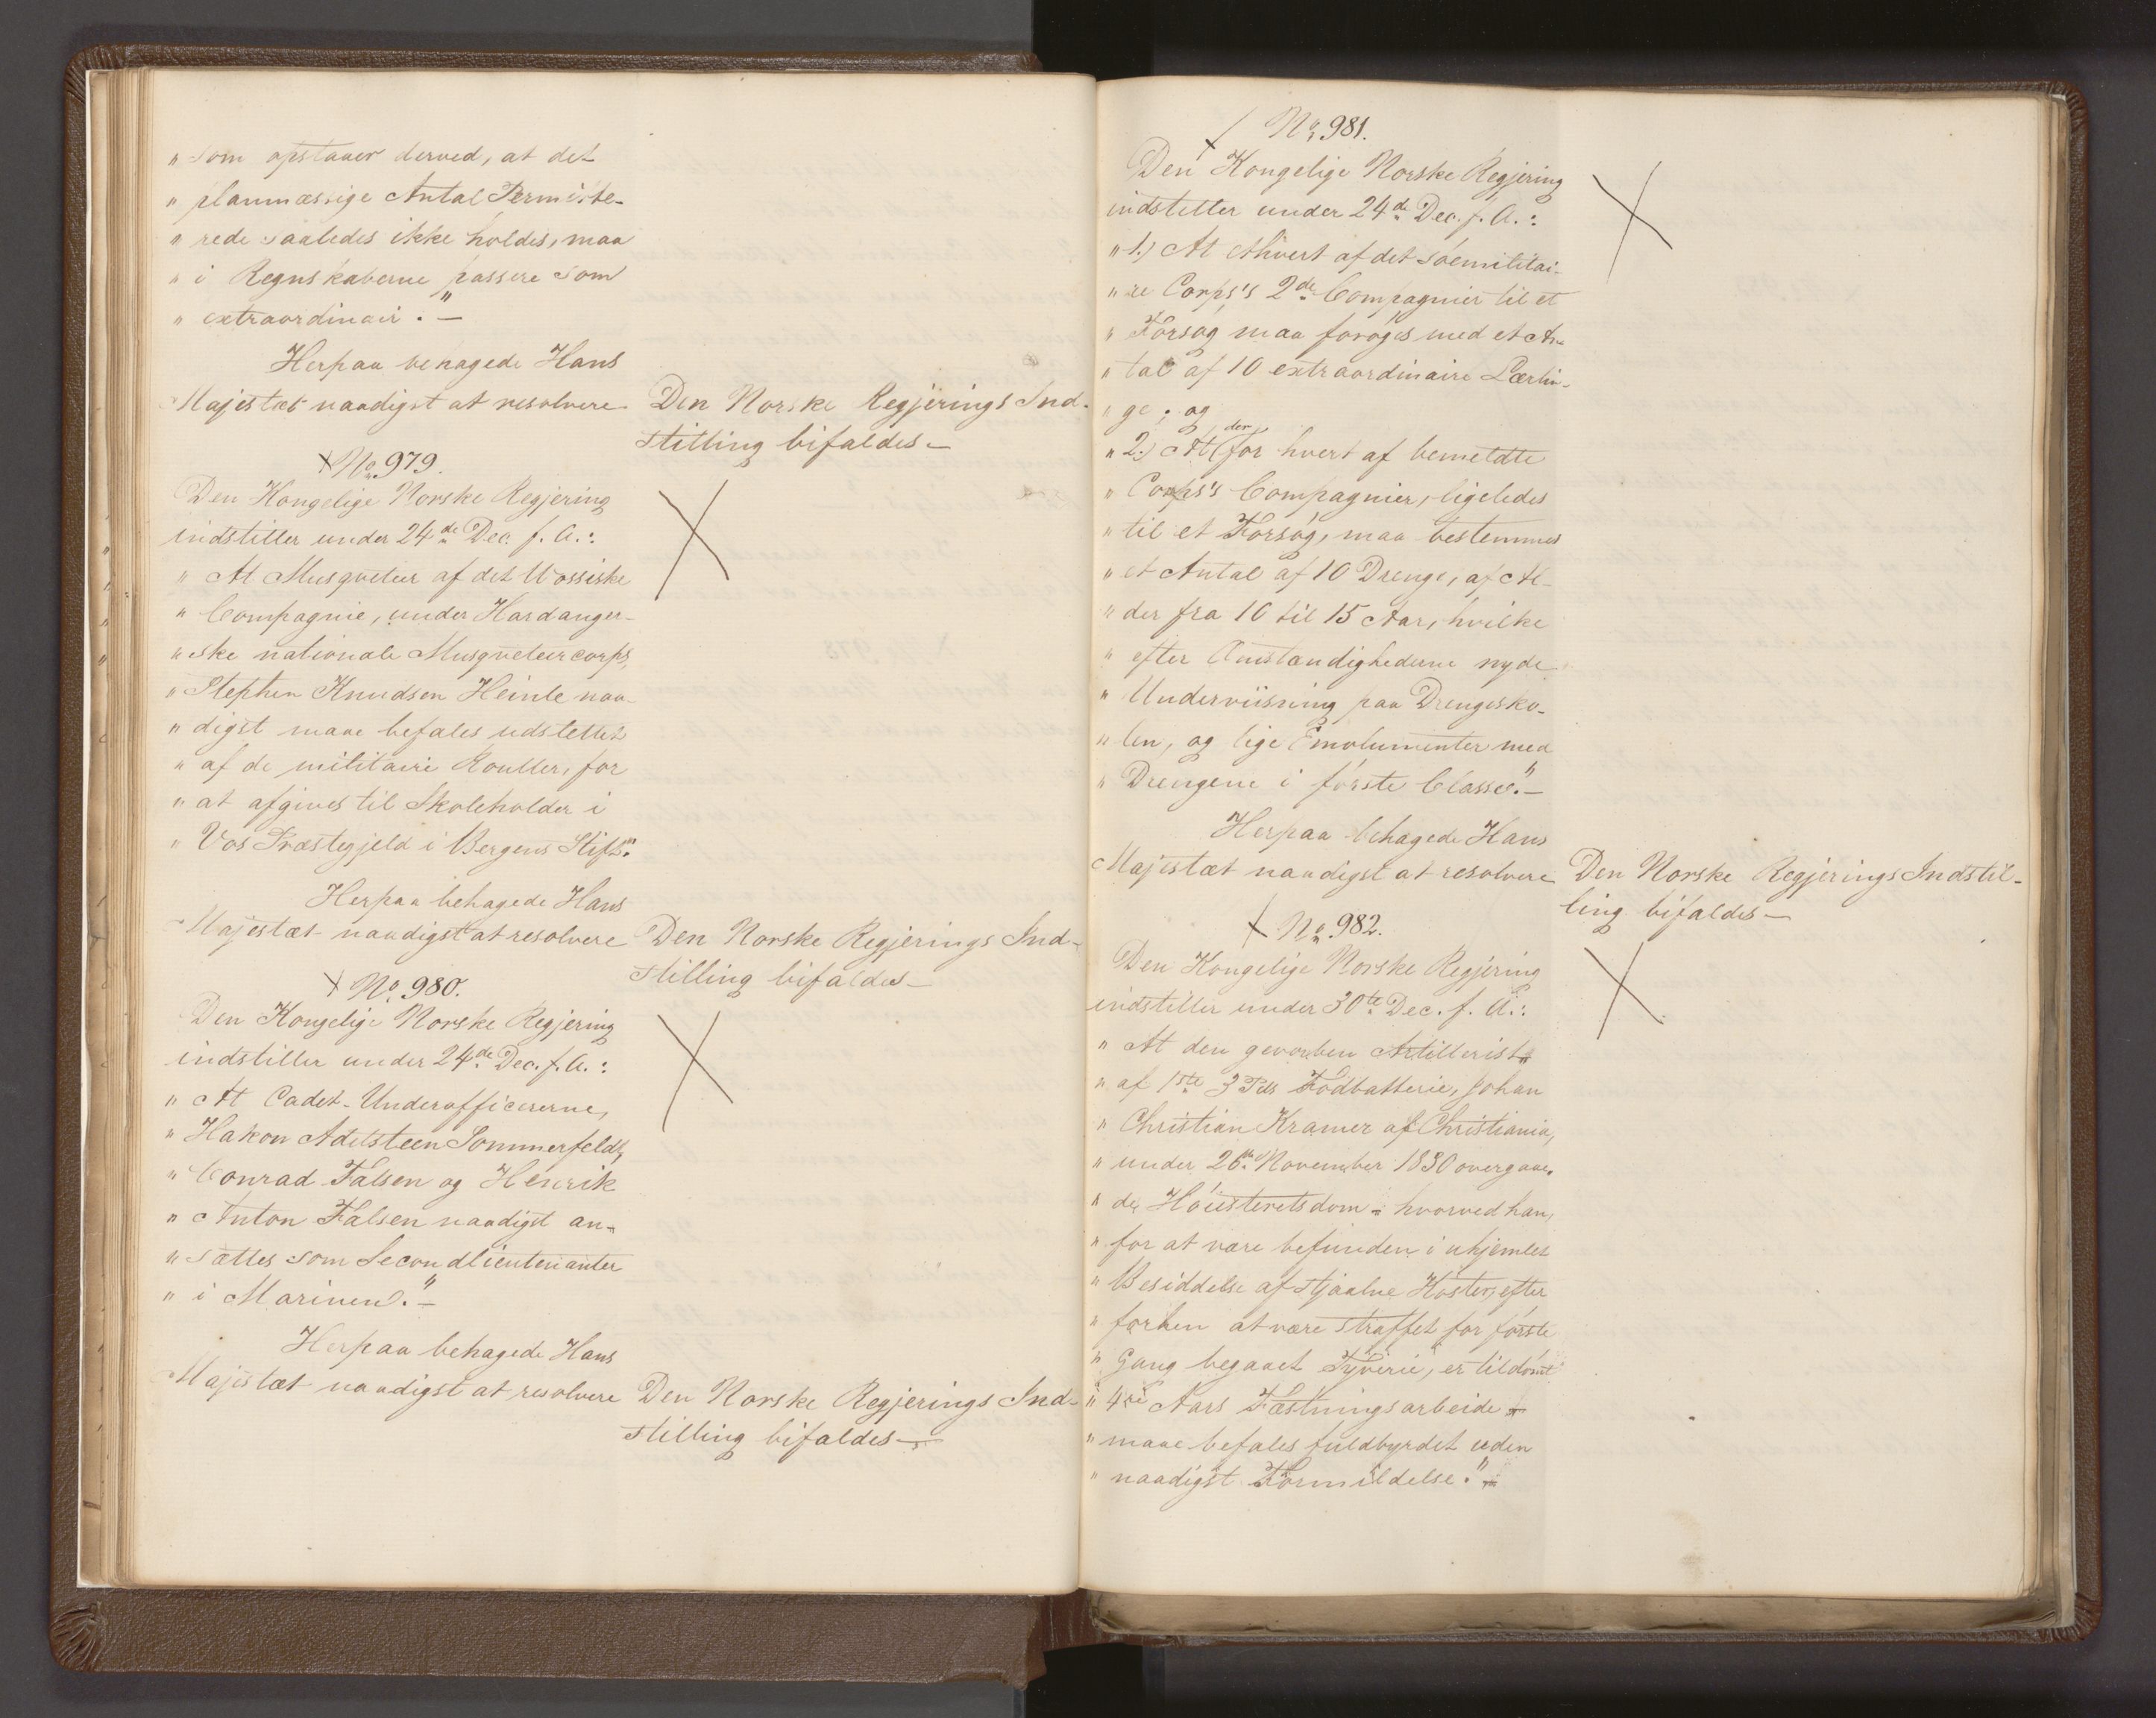 " som opstaaer derved, at det
" planmæssige Antal Permitte-
" rede saaledes ikke holdes, maa
" i Regnskaberne passere som
" extraordinair." —
Herpaa behagede Hans
Majestæt naadigst at resolvere
Den Norske Regjerings Ind-
stilling bifaldes —
No 979.
Den Kongelige Norske Regjering
indstiller under 24de Dec. f. A.:
" At Musqueteer af det Vossiske
" Compagnie, under Hardanger-
" ske nationale Musqueteercorps,
" Stephen Knudsen Heinle naa-
" digst maae befales udslettet
" af de militaire Rouller, for
" at afgives til Skoleholder i
" Vos Præstegjeld i Bergens Stift."
Herpaa behagede Hans
Majestæt naadigst at resolvere
Den Norske Regjerings Ind-
stilling bifaldes —
No 980.
Den Kongelige Norske Regjering
indstiller under 24de Dec. f. A.:
" At Cadet-Underofficererne,
" Hakon Adelsteen Sommerfeldt,
" Conrad Falsen og Henrik
" Anton Falsen naadigst an-
" sættes som Secondlieutenanter
" i Marinen." —
Herpaa behagede Hans
Majestæt naadigst at resolvere
Den Norske Regjerings Ind-
stilling bifaldes —
No 981.
Den Kongelige Norske Regjering
indstiller under 24de Dec. f. A.:
" 1.) At ethvert af det söemilitai-
" re Corps's 2de Compagnier til et
" Forsøg maa forøges med et An-
" tal af 10 extraordinaire Lærlin-
" ge; og
" 2.) At der for hvert af bemeldte
" Corps's Compagnier, ligeledes
" til et Forsøg, maa bestemmes
" et Antal af 10 Drenge, af Al-
" der fra 10 til 15 Aar, hvilke
" efter Omstændighederne nyde
" Underviisning paa Drengesko-
" len, og lige Emolumenter med
" Drengene i förste Classe." —
Herpaa behagede Hans
Majestæt naadigst at resolvere
Den Norske Regjerings Indstil-
ling bifaldes —
No 982.
Den Kongelige Norske Regjering
indstiller under 30te Dec. f. A.:
" At den gevorben Artillerist
" af 1ste 3 Pds Fodbatterie, Johan
" Christian Kramer af Christiania,
" under 26de November 1830 overgaae-
" de Höiesteretsdom - hvorved han,
" for at være befunden i uhjemlet
" Besiddelse af stjaalne Koster, efter
" forhen at være straffet for förste
" Gang begaaet Tyverie, er tildömt
" 4re Aars Fæstningsarbeide -
" maae befales fuldbyrdet uden
" naadigst Formildelse." —